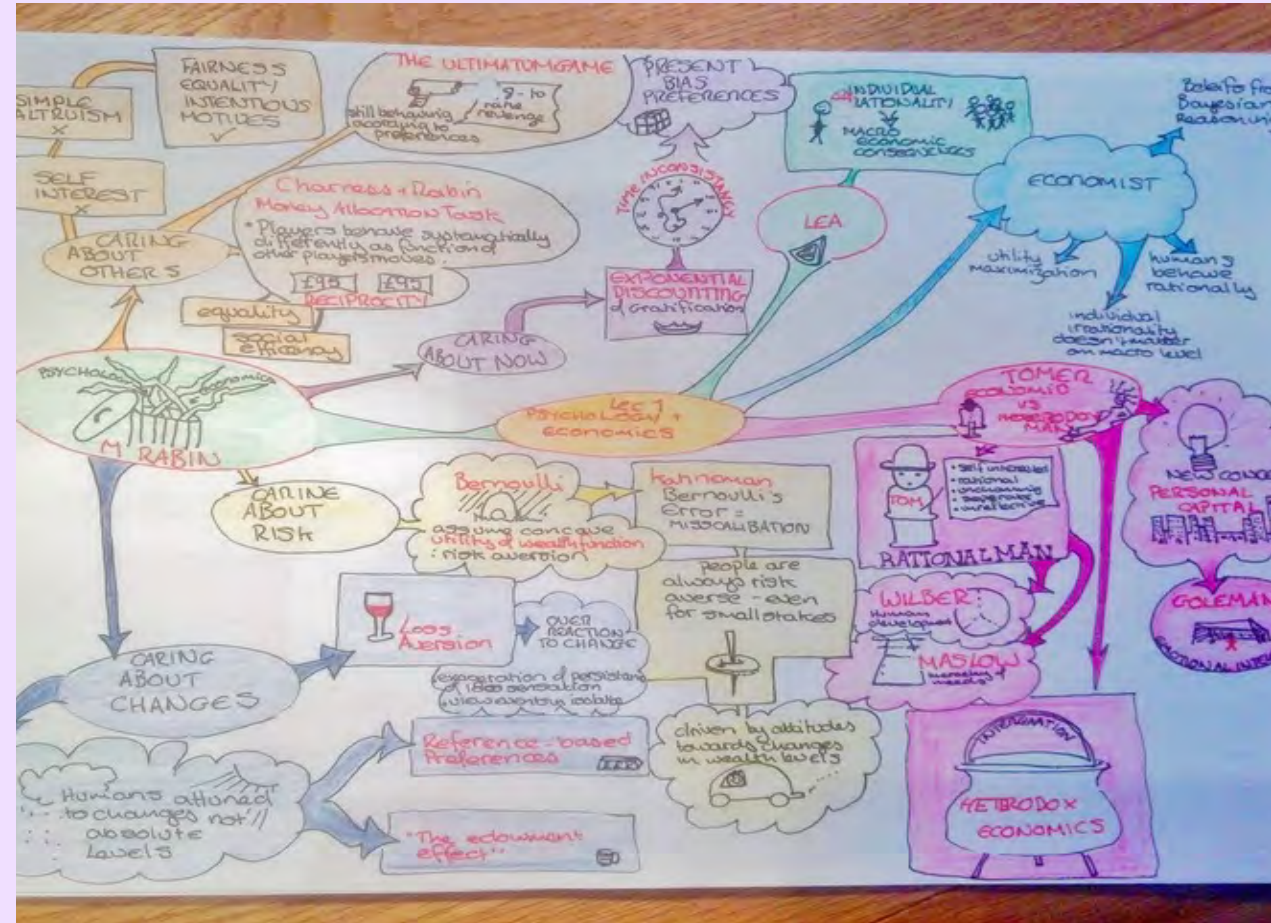 SIMPLE
ALTRUISM
X
FAIRNESS
EQUALITY/
INTENTIONS
MOTIVES
✓
SELF
INTEREST
X
CARING
ABOUT
OTHERS
THE ULTIMATUM GAME
still behaving
according to
preferences
revenge
Charness + Rabin
Money Allocation Task
• Players behave systematically
differently as function of
other players moves.
RECIPROCITY
equality
social
PRESENT
BIAS
PREFERENCES
TIME INCONSISTANCY
EXPONENTIAL
DISCOUNTING
of Gratification
CARING
ABOUT NOW
INDIVIDUAL
RATIONALITY
MACRO
economic
consequences
LEA
ECONOMIST
Bayesian
Reasoning
utility
maximization
humans
behave
rationally
individual
irrationality
on macro level
PSYCHOLOGY
economics
M RABIN
LEC 7
PSYCHOLOGY +
ECONOMICS
TOMER
ECONOMIC
VS
MAN
TOM
• self interested
• rational
• unchanging
RATIONAL MAN
PERSONAL
CAPITAL
GOLEMAN
WILBER:
Human
development
MASLOW
hierarchy of
needs
INTEGRATION
HETRODOX
ECONOMICS
ABOUT
RISK
Bernoulli
assume concave
utility of wealth function
: risk aversion
Kahneman
Bernoulli's
Error =
people are
always risk
averse - even
for small stakes
driven by attitudes
towards changes
in wealth levels
CARING
ABOUT
CHANGES
Loss
Aversion
OVER
REACTION
TO CHANGE
Humans attuned
to changes not
absolute
Levels
Reference-based
Preferences
"The edowment
effect"